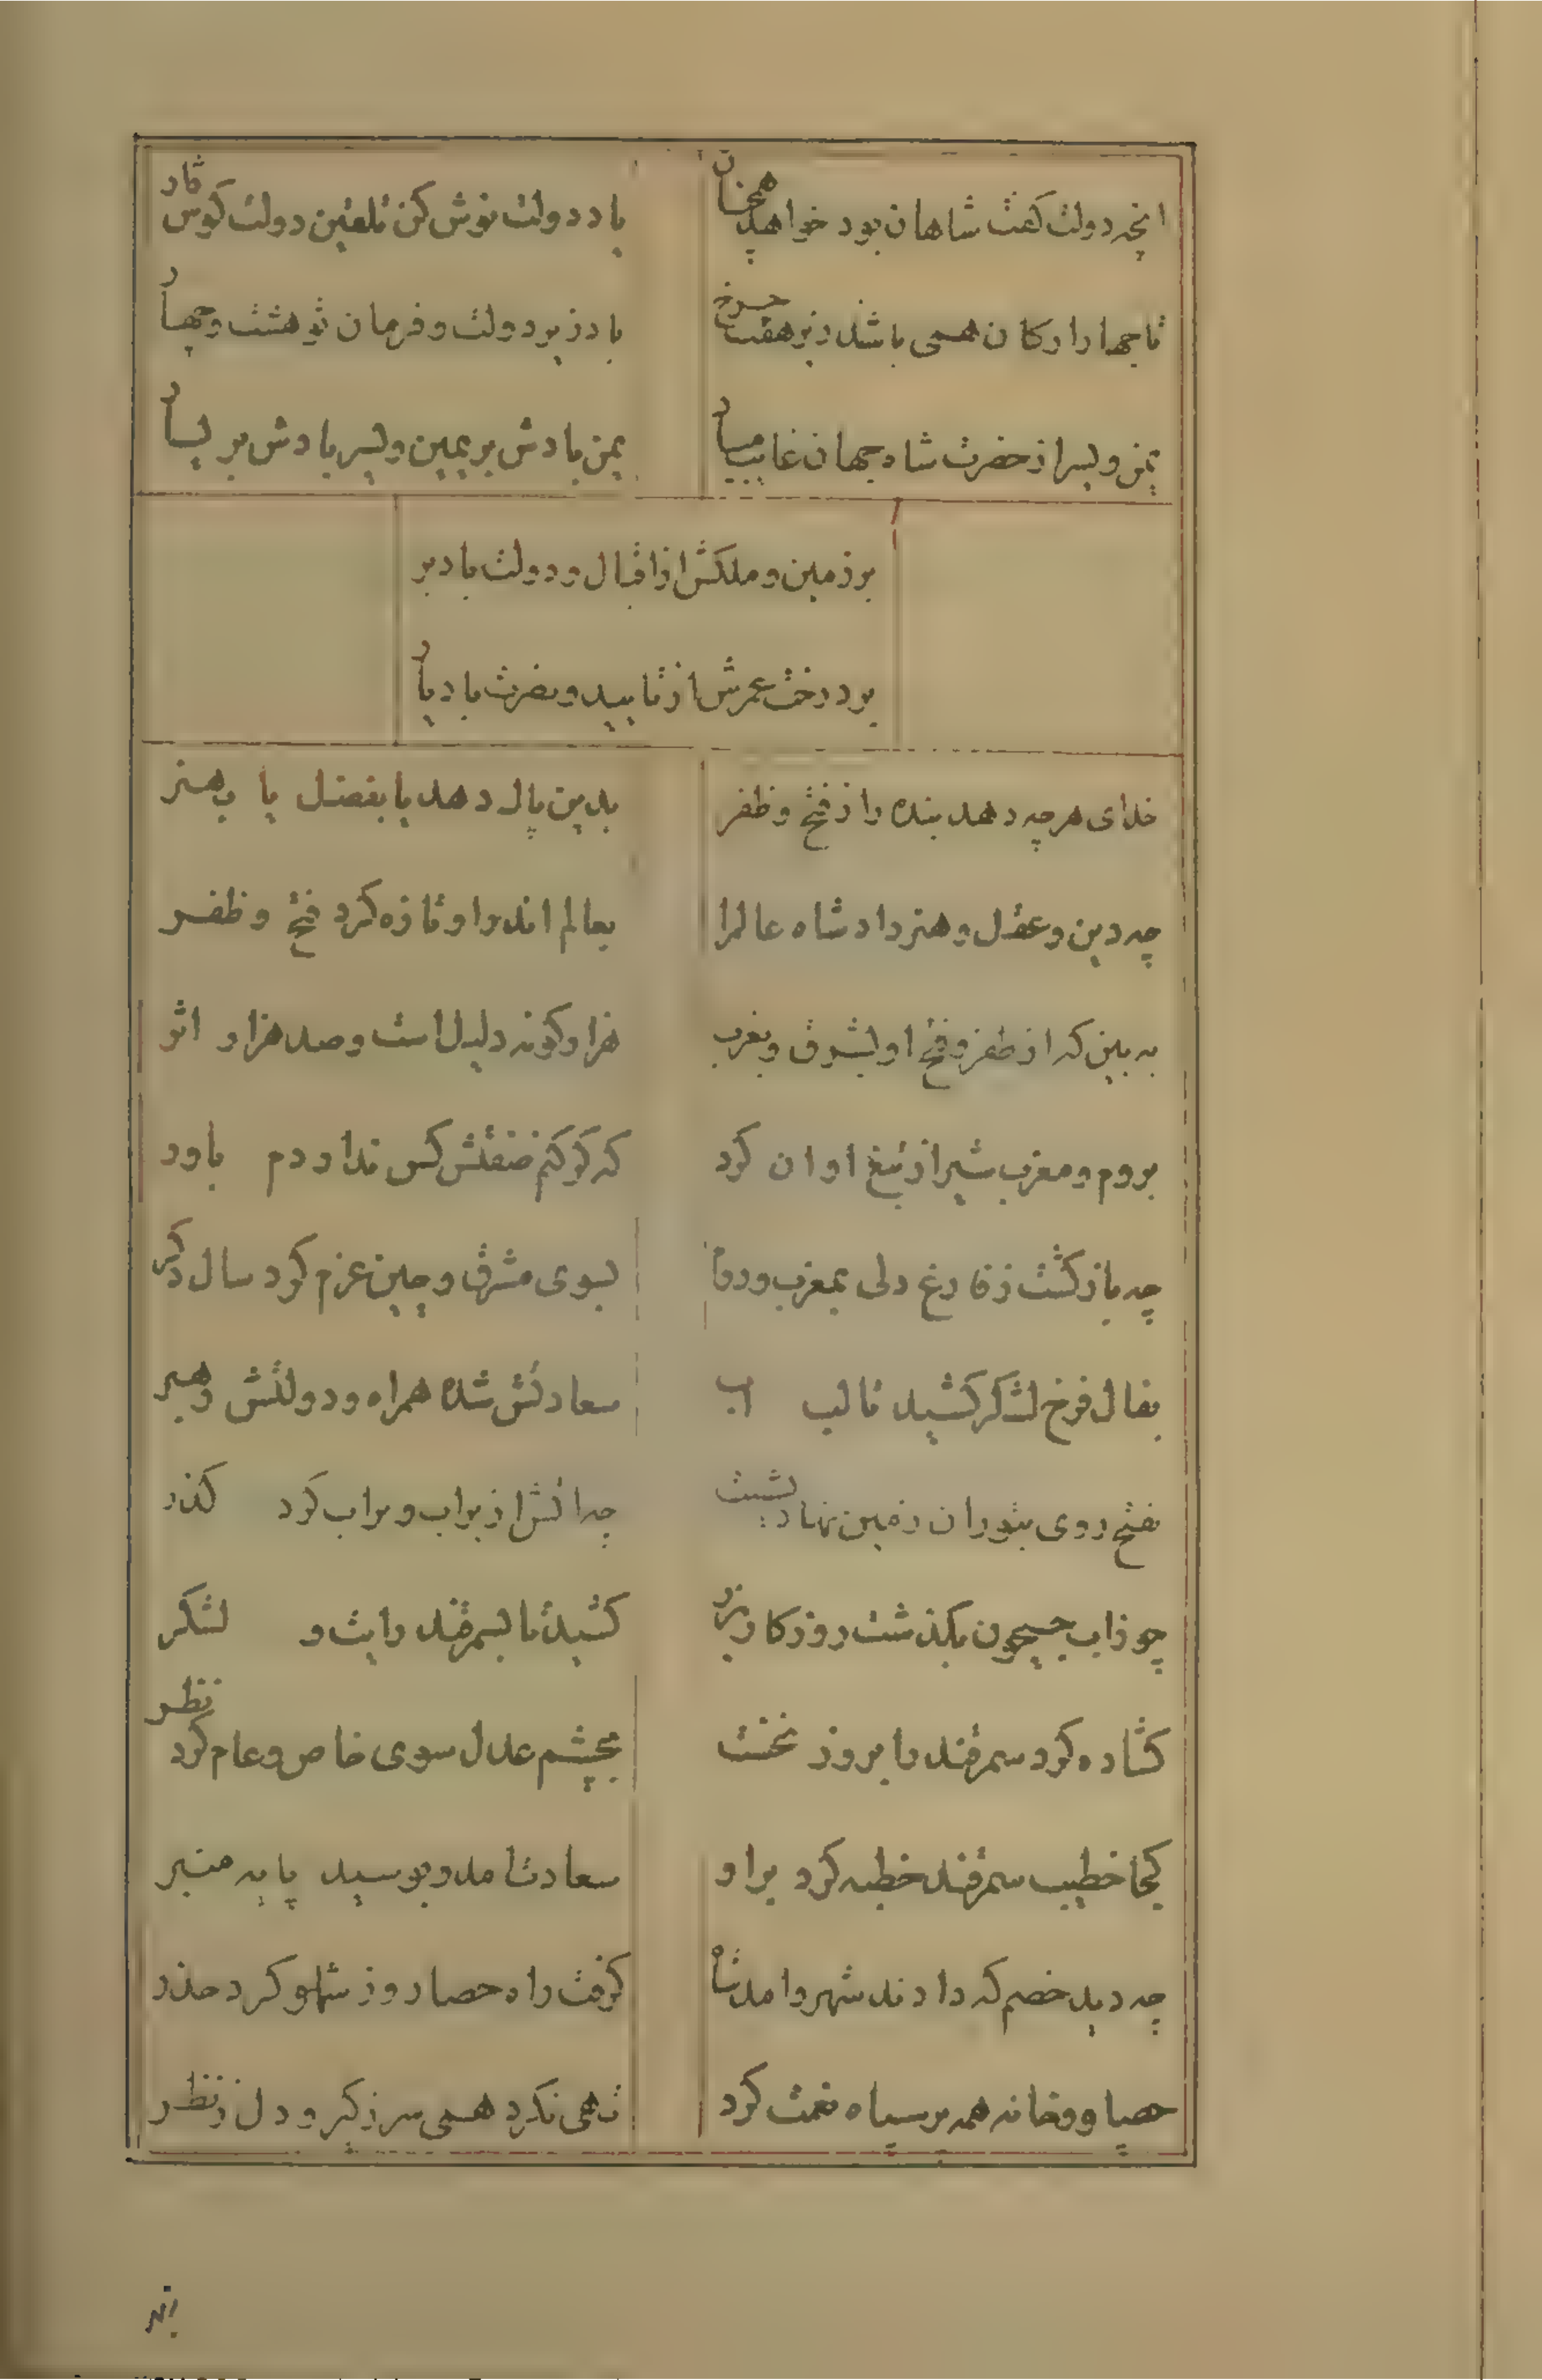 انچه دولت کفت شاهان بود خواهد همچنان
باد دولت نوش کن تلقین دولت کوش دار
تا چهار ارکان همی باشد زیر هفت چرخ
باد زیر دولت و فرمان تو هشت و چهار
یمن و یسر از حضرت شاه جهان غایب مباد
یمن بادش بر یمین و یسر بادش بر یسار
بر زمین و ملکش از اقبال و دولت باد بر
بر درخت عمرش از تایید و نصرت باد بار
خدای هرچه دهد بنده را ز فتح و ظفر
بدین پاک دهد یا بفضل یا بهنر
چه دین و عقل و هنر داد شاه عالمرا
بعالم اندر او تازه کرد فتح و ظفر
به بین که از ظفر و فتح او بشرق و بغرب
هزار کونه دلیل است و صد هزار اثر
بروم و مغرب شیر از تیغ او ان کرد
که کر کنم صفتش کس ندارد م باور
چه باز کشت ز فارغ دلی بمغرب و روم
بسوی مشرق و چین عزم کرد سال دکر
بفال فرخ لشکر کشید تا لب اب
سعادتش شده همراه و دولتش رهبر
بفتح روی بتوران زمین نهاد بشست
چه اتش از بر اب و بر اب کرد کذر
چو زاب جیحون بکذشت روزکار نبرد
کشید تا بسمرقند رایت و لشکر
کشاده کرد سمرقند را بروز نخست
بچشم عدل سوی خاص و عام کرد نظر
کجا خطیب سمرقند خطبه کرد بر او
سعادت امد و بوسید پایه منبر
چه دید خصم که دادند شهر و امد شاه
کرفت راه حصار و ز شاه کرد حذر
حصار و خانه همه بر سپاه نعمت کرد
تهی نکرد همی سر ز کبر و دل ز نظر